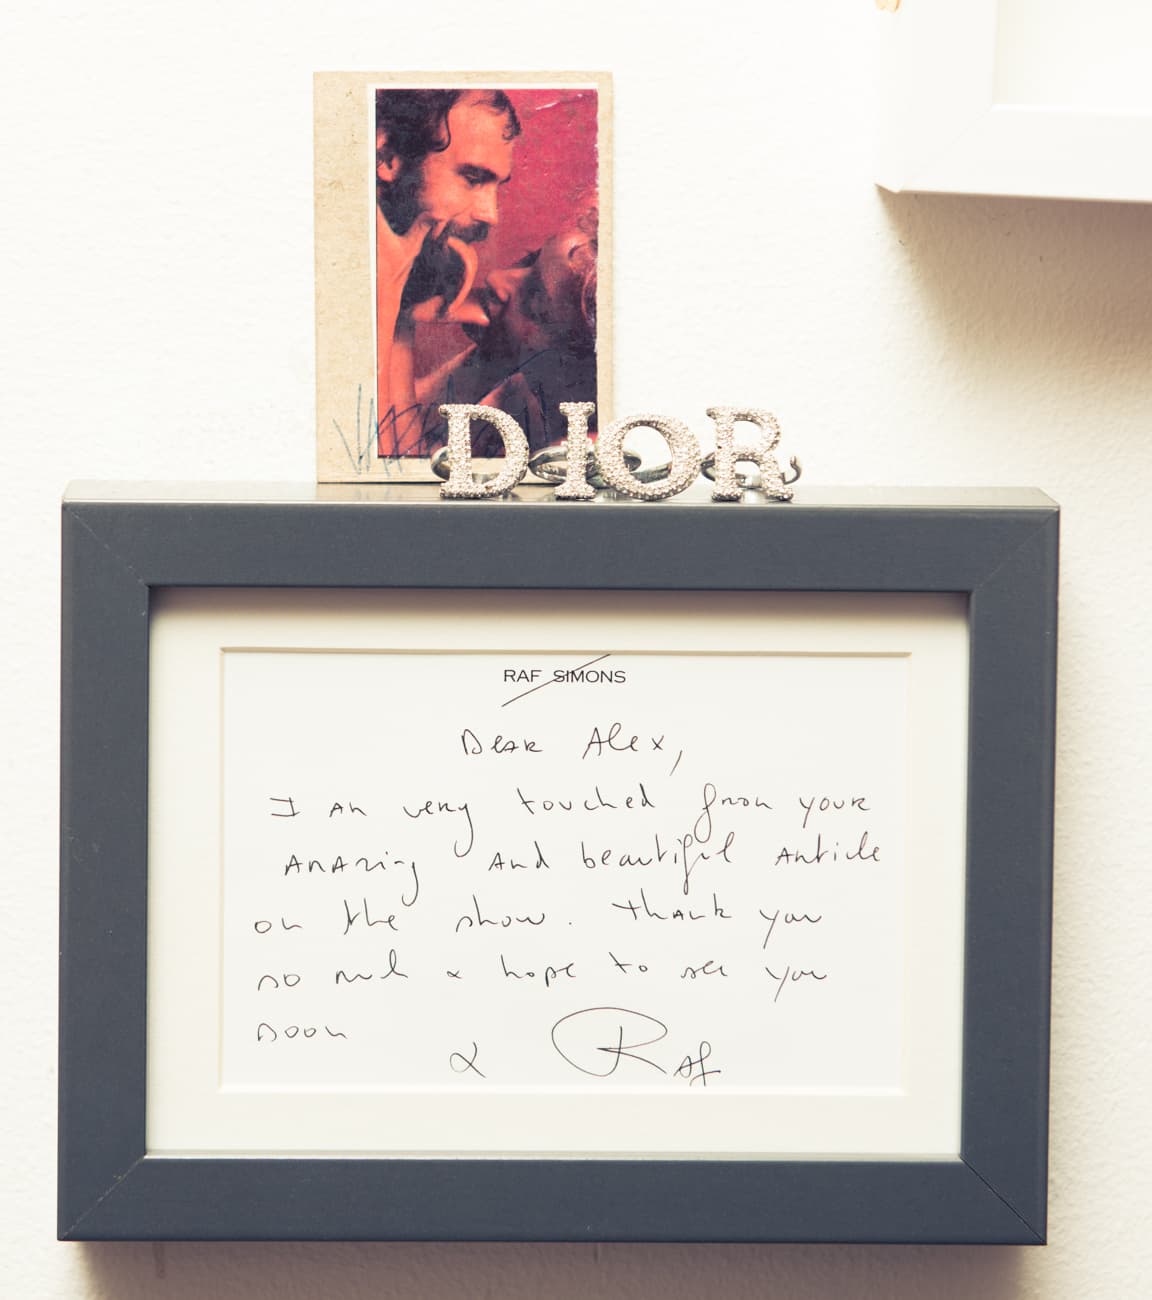 DIOR
RAF SIMONS
Dear Alex,
I am very touched from your
amazing and beautiful article
on the show. Thank you
so much & hope to see you
soon
x Raf